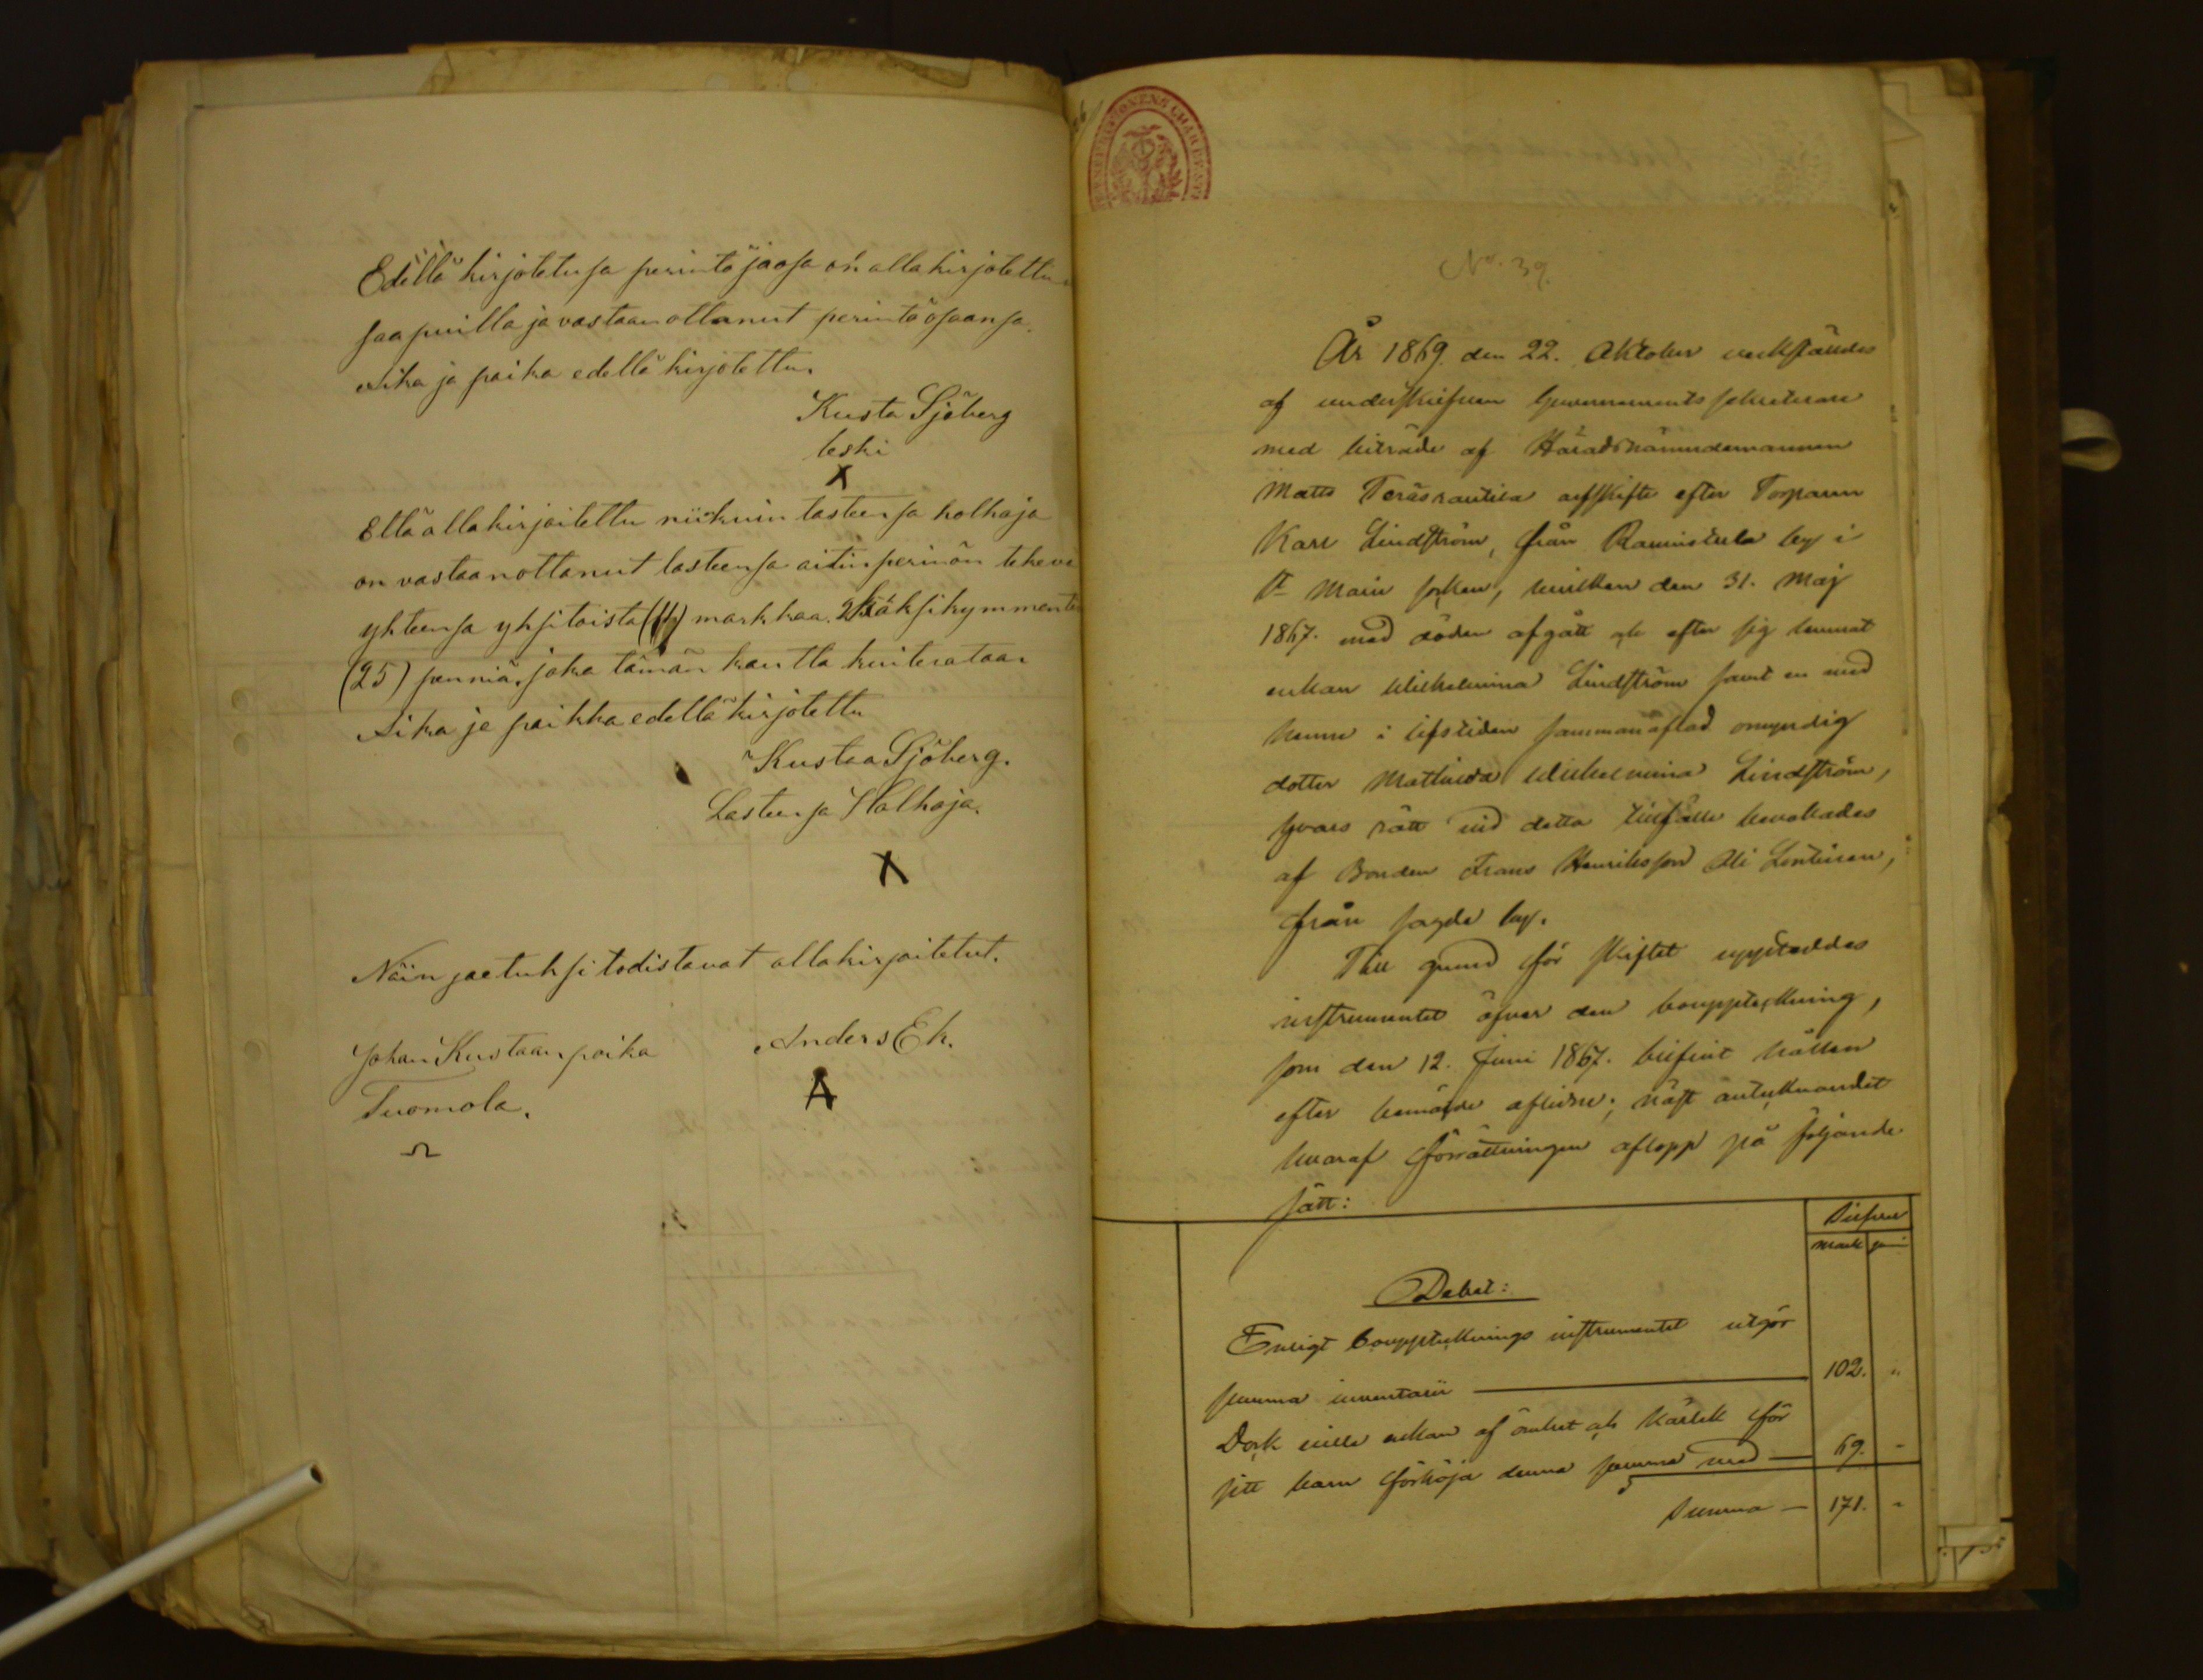 Edellä kirjotetusa perintö jaosa on allakirjotettu
saapuilla ja vastaan ottanut perintö osaansa.
Aika ja paika edellä kirjotettu.
Kusta Sjöberg
leski
X
Että allakirjoitettu niikuin lastensa holhoja
on vastaanottanut lastensa aitin perinön tekeve
yhteensä yksitoista (11) markkaa 2 kaksikymmentä
(25) penniä, joka tämän kautta kuiterataan
Aika ja paikka edellä kirjotettu
Kustaa Sjöberg.
Lastensa Holhoja.
X
Näin jaetuksi todistavat allakirjoitetut.
Johan Kustaan poika
Anders Ek.
Tuomola.
A
No. 39.
År 1869 den 22. Oktober verkställdes
af underskrifven Guvernements sekreterare
med biträde af Häradsnämndemannen
Matts Teräsrautila arfskifte efter Torparen
Karl Lindström, från by i
St Marie socken, hvilken den 31. Maj
1867. med döden afgått och efter sig lemnat
enkan Wilhelmina Lindström samt en med
henne i lifstiden sammanaflad omyndig
dotter Mathilda Wilhelmina Lindström,
hvars rätt vid detta tillfälle bevakades
af Bonden Frans Henriksson Ali Lentinen,
från sagde by.
Till grund för skiftet uppställdes
instrumentet öfver den bouppteckning,
som den 12. Juni 1867. blifvit hållen
efter bemälde aflidne; näst antecknandet
hvaraf förrättningen aflopp på följande
sätt:
Silfver
mark pi
Debet:
Enligt bouppteckningsinstrumentet utgör
summa inventarii — 102. "
Dock ville enkan af ömhet och kärlek för
sitt barn förhöja denna summa med — 69. "
Summa — 171. "